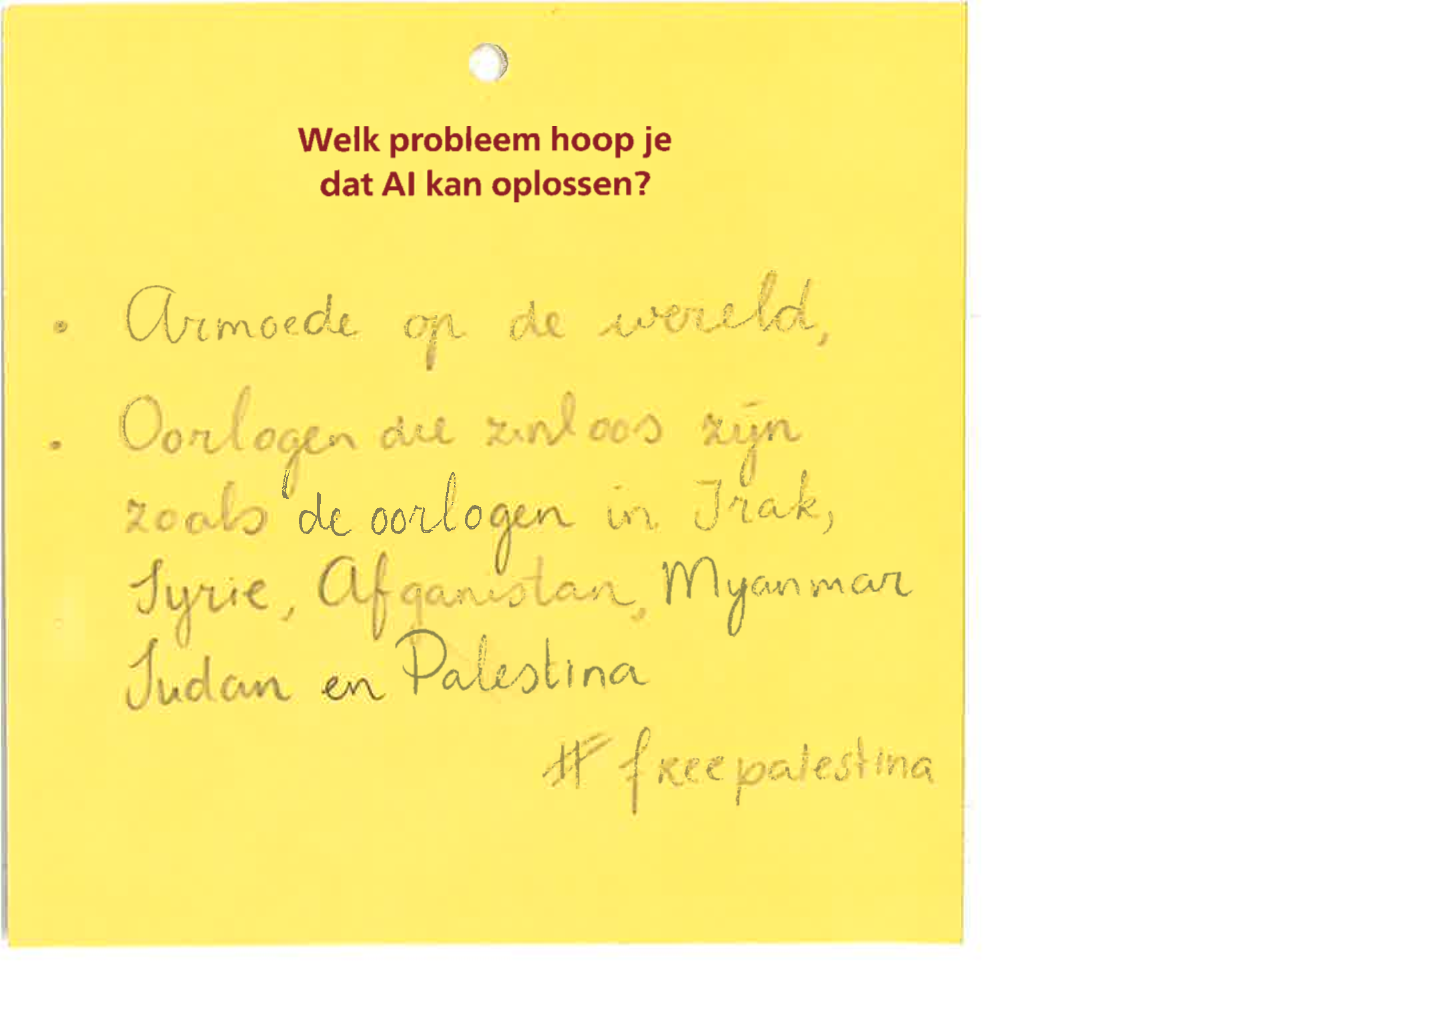 Welk probleem hoop je
dat AI kan oplossen?
• Armoede op de wereld,
• Oorlogen die zinloos zijn
zoals de oorlogen in Irak,
Syrie, Afganistan, Myanmar
Sudan en Palestina
#freepalestina